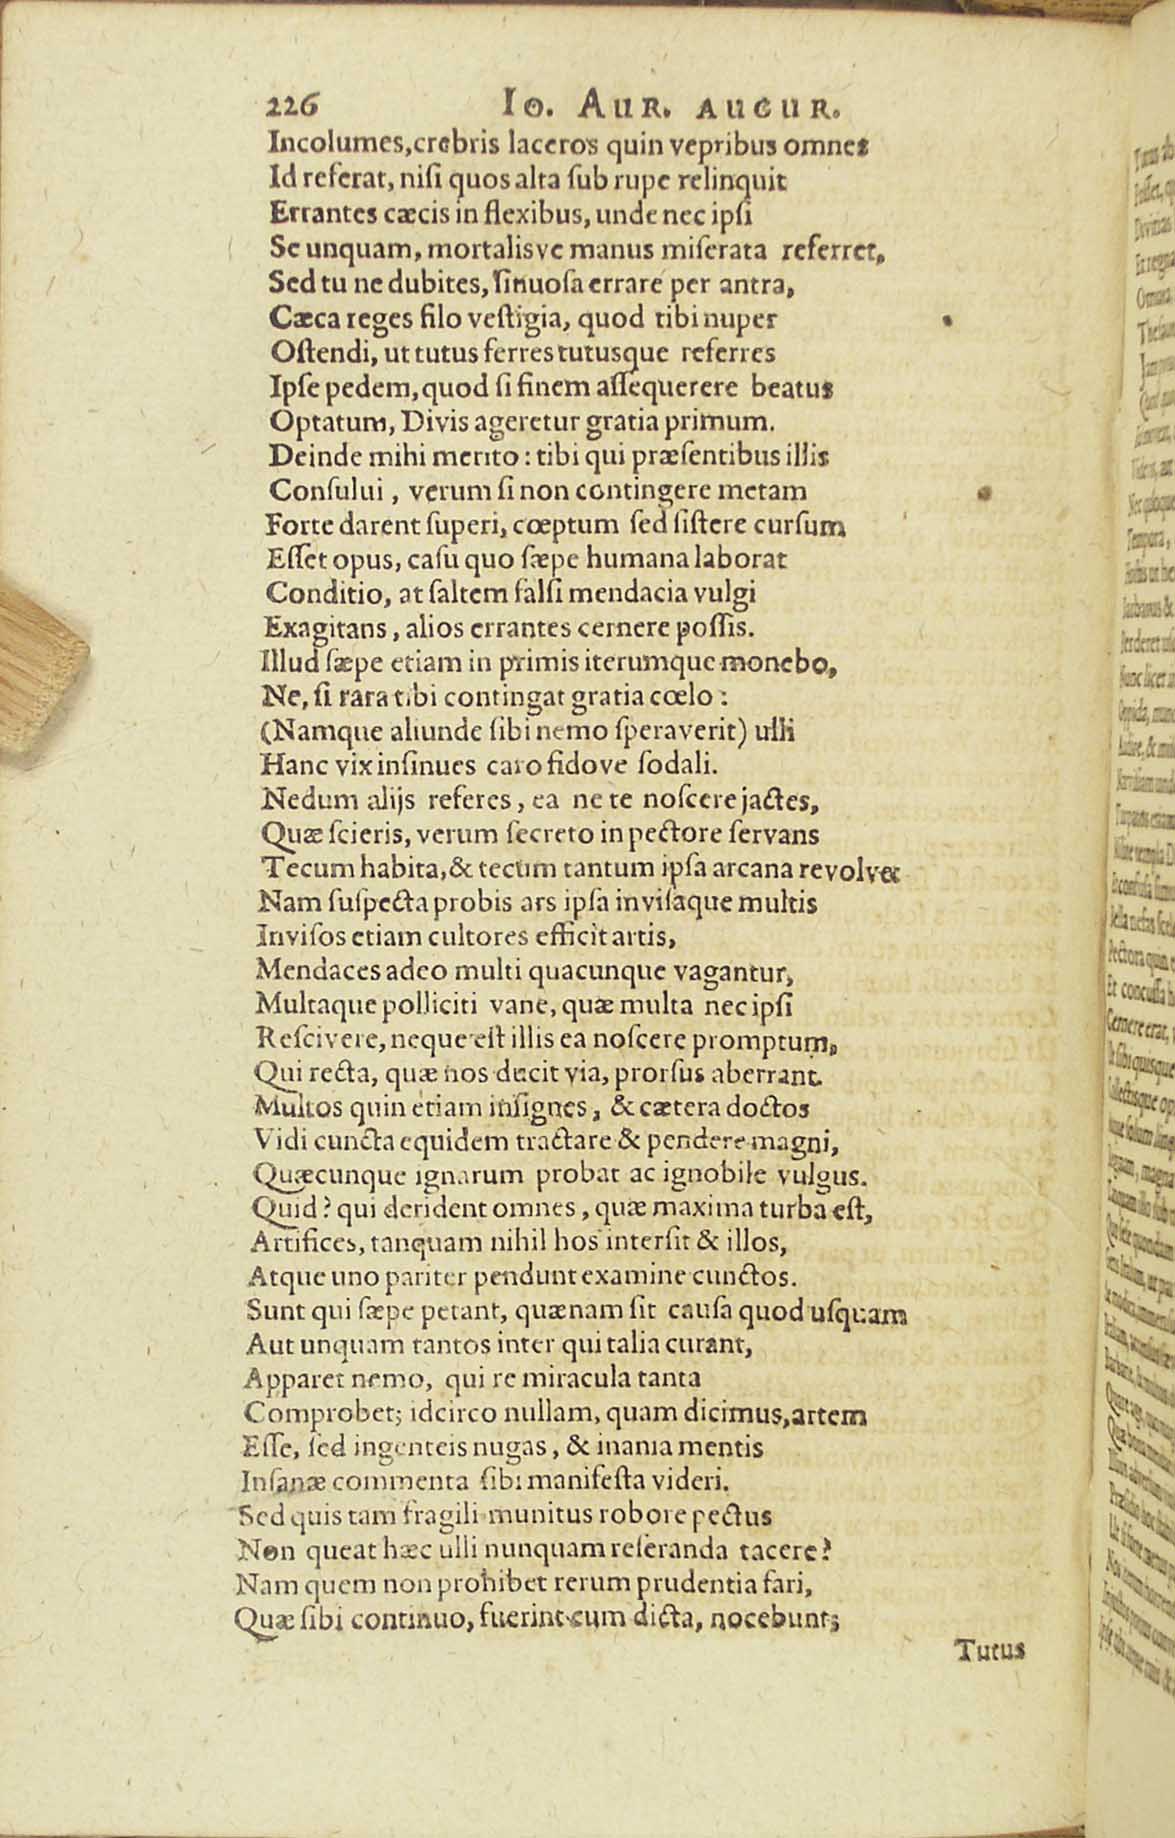 226 Io. Aur. Augur.
Incolumes, crebris laceros quin vepribus omnes
Id referat, nisi quos alta sub rupe relinquit
Errantes cæcis in flexibus, unde nec ipsi
Se unquam, mortalisve manus miserata referret,
Sed tu ne dubites, sinuosa errare per antra,
Cæca reges filo vestigia, quod tibi nuper
Ostendi, ut tutus ferres tutusque referres
Ipse pedem, quod si finem assequerere beatus
Optatum, Divis ageretur gratia primum.
Deinde mihi merito: tibi qui præsentibus illis
Consului, verum si non contingere metam
Forte darent superi, cœptum sed sistere cursum
Esset opus, casu quo sæpe humana laborat
Conditio, at saltem falsi mendacia vulgi
Exagitans, alios errantes cernere possis.
Illud sæpe etiam in primis iterumque monebo,
Ne, si rara tibi contingat gratia cœlo:
(Namque aliunde sibi nemo speraverit) ulli
Hanc vix insinues caro fidove sodali.
Nedum alijs referes, ea ne te noscere jactes,
Quæ scieris, verum secreto in pectore servans
Tecum habita, & tecum tantum ipsa arcana revolve:
Nam suspecta probis ars ipsa invisaque multis
Invisos etiam cultores efficit artis,
Mendaces adeo multi quacunque vagantur,
Multaque polliciti vane, quæ multa nec ipsi
Rescivere, neque est illis ea noscere promptum,
Qui recta, quæ nos ducit via, prorsus aberrant.
Multos quin etiam insignes, & cætera doctos
Vidi cuncta equidem tractare & pendere magni,
Quæcunque ignarum probat ac ignobile vulgus.
Quid? qui derident omnes, quæ maxima turba est,
Artifices, tanquam nihil hos intersit & illos,
Atque uno pariter pendunt examine cunctos.
Sunt qui sæpe petant, quænam sit causa quod usquam
Aut unquam tantos inter qui talia curant,
Apparet nemo, qui re miracula tanta
Comprobet; idcirco nullam, quam dicimus, artem
Esse, sed ingenteis nugas, & inania mentis
Insanæ commenta sibi manifesta videri.
Sed quis tam fragili munitus robore pectus
Non queat hæc ulli nunquam reseranda tacere?
Nam quem non prohibet rerum prudentia fari,
Quæ sibi continuo, fuerint cum dicta, nocebunt;
Tutus